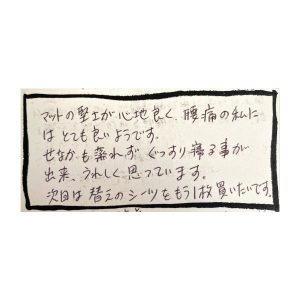 マットの堅さが心地良く、腰痛の私に
はとても良いようです。
せなかも蒸れず ぐっすり寝る事が
出来、うれしく思っています。
次回は替えのシーツをもう1枚買いたいです。